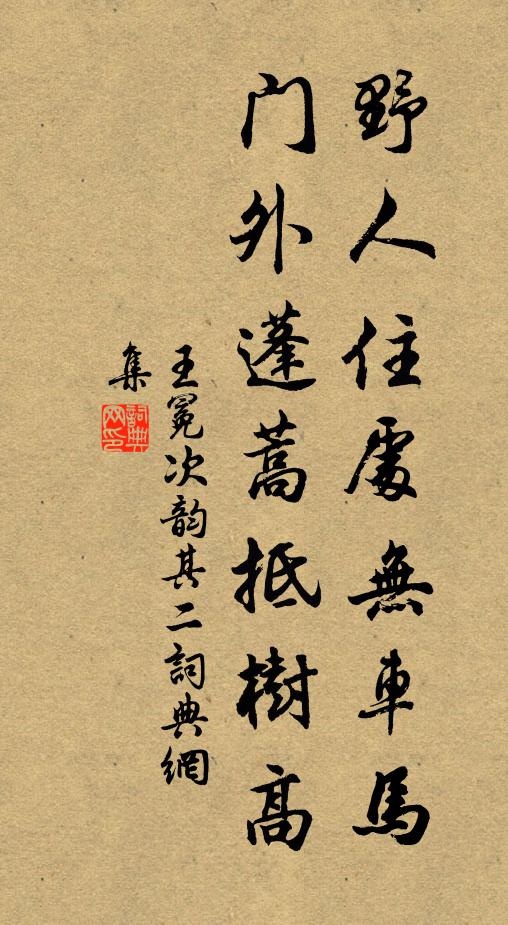 野人住處無車馬
门外蓬蒿抵樹高
王冕次韵其二詞典網
集
詞典网印